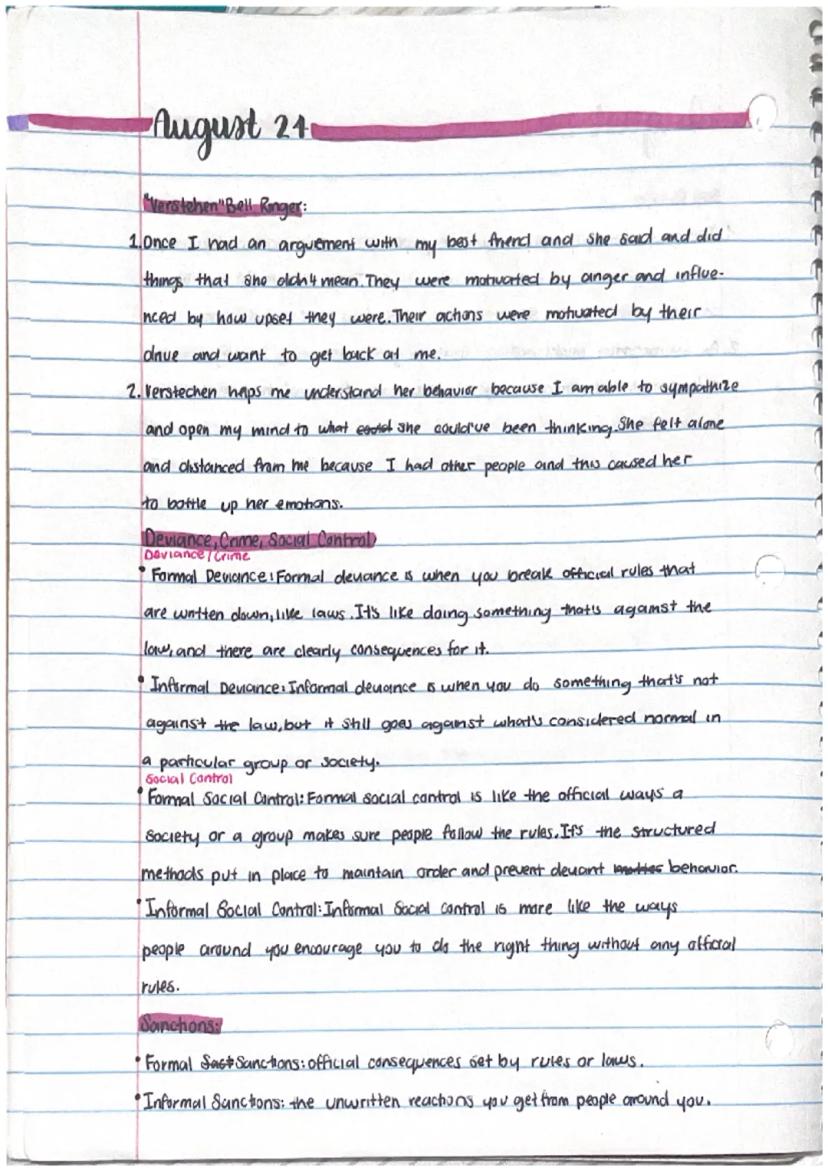 August 21
"Verstehen" Bell Ringer:
1. Once I had an arguement with my best friend and she said and did
things that she didn't mean. They were motivated by anger and influe-
nced by how upset they were. Their actions were motivated by their
drive and want to get back at me.
2. Verstechen helps me understand her behavior because I am able to sympathize
and open my mind to what she could've been thinking. She felt alone
and distanced from me because I had other people and this caused her
to bottle up her emotions.
Deviance, Crime, Social Control
Deviance/Crime
• Formal Deviance: Formal deviance is when you break official rules that
are written down, like laws. It's like doing something that's against the
law, and there are clearly consequences for it.
• Informal Deviance: Informal deviance is when you do something that's not
against the law, but it still goes against what's considered normal in
a particular group or society.
Social Control
• Formal Social Control: Formal social control is like the official ways a
society or a group makes sure people follow the rules. It's the structured
methods put in place to maintain order and prevent deviant behavior.
• Informal Social Control: Informal Social control is more like the ways
people around you encourage you to do the right thing without any official
rules.
Sanctions:
• Formal Sanctions: official consequences set by rules or laws.
• Informal Sanctions: the unwritten reactions you get from people around you.